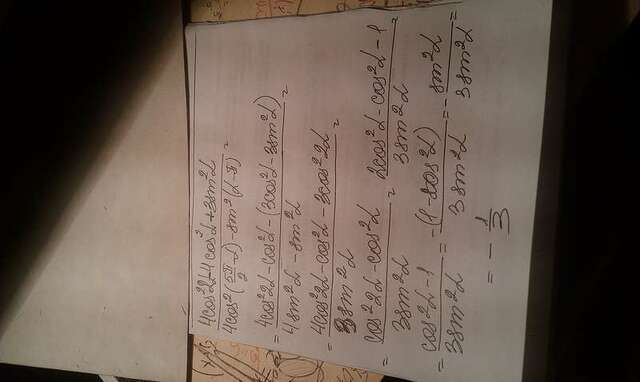 4cos²2α-4cos²α+3sin²α / 4cos²(5π/2-α)-sin²(α-π) =
= 4cos²2α-cos²α-(3cos²α-3sin²α) / 4sin²α-sin²α =
= 4cos²2α-cos²α-3cos²2α / 3sin²α =
= cos²2α-cos²α / 3sin²α = 2cos²α-cos²α-1 / 3sin²α =
= cos²α-1 / 3sin²α = -(1-cos²α) / 3sin²α = -sin²α / 3sin²α =
= -1/3